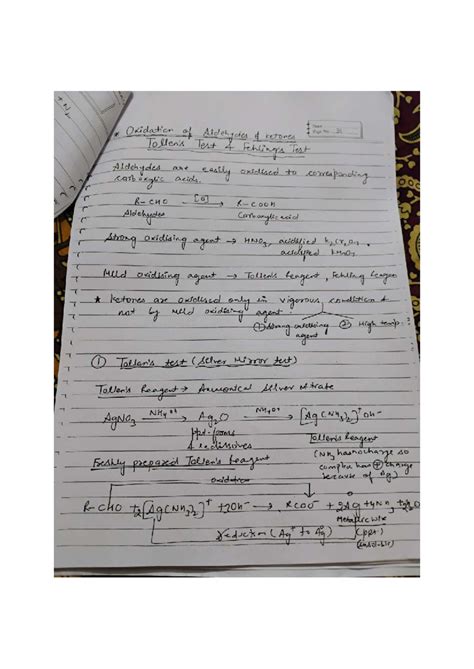 * Oxidation of Aldehydes & ketones
Tollen's Test & Fehling's Test
Aldehydes are easily oxidised to corresponding
carboxylic acids.
R-CHO [O] → R-COOH
Aldehydes Carboxylic acid
Strong oxidising agent → HNO3, acidified K2Cr2O7,
acidified KMnO4
Mild oxidising agent → Tollen's reagent, Fehling reagent
* Ketones are oxidised only in vigorous condition &
not by Mild oxidising agent.
① Strong oxidising agent ② High temp.
① Tollen's test (Silver Mirror test)
Tollen's Reagent → Ammonical silver nitrate
AgNO3 NH4OH → Ag2O NH4OH → [Ag(NH3)2]+OH-
ppt forms
& redissolves
Tollen's Reagent
(NH3 has no charge so
complex has + charge
because of Ag)
Freshly prepared Tollen's Reagent
oxidation
R-CHO + 2[Ag(NH3)2]+ + 3OH- → RCOO- + 2Ag + 4NH3 + 2H2O
Metallic
reduction (Ag+ to Ag) (ppt)